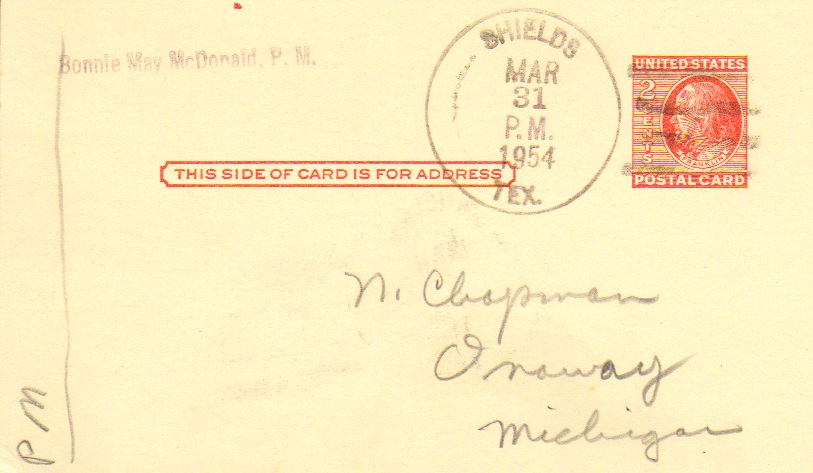 Bonnie May McDonald, P. M.
SHIELDS
MAR
31
P.M.
1954
TEX.
UNITED STATES
2 CENTS
FRANKLIN
POSTAL CARD
THIS SIDE OF CARD IS FOR ADDRESS
N. Chapman
Onaway
Michigan
P M